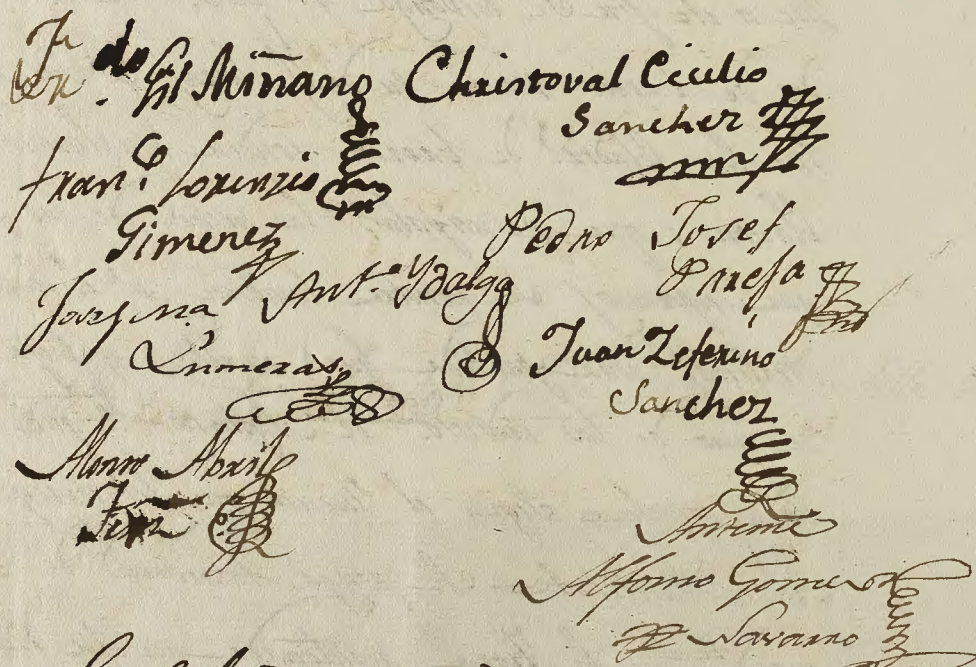 Fern.do Gil Miñano
Christoval Cicilio
Sanchez
Fran.co Lorenzio
Gimenez
Pedro Josef
Pareja
Ant.o Ydalgo
Lumeras
Juan Zeferino
Sanchez
Alonso Abril
Fern.z
Anteme
Alfonso Gomez
Navarro